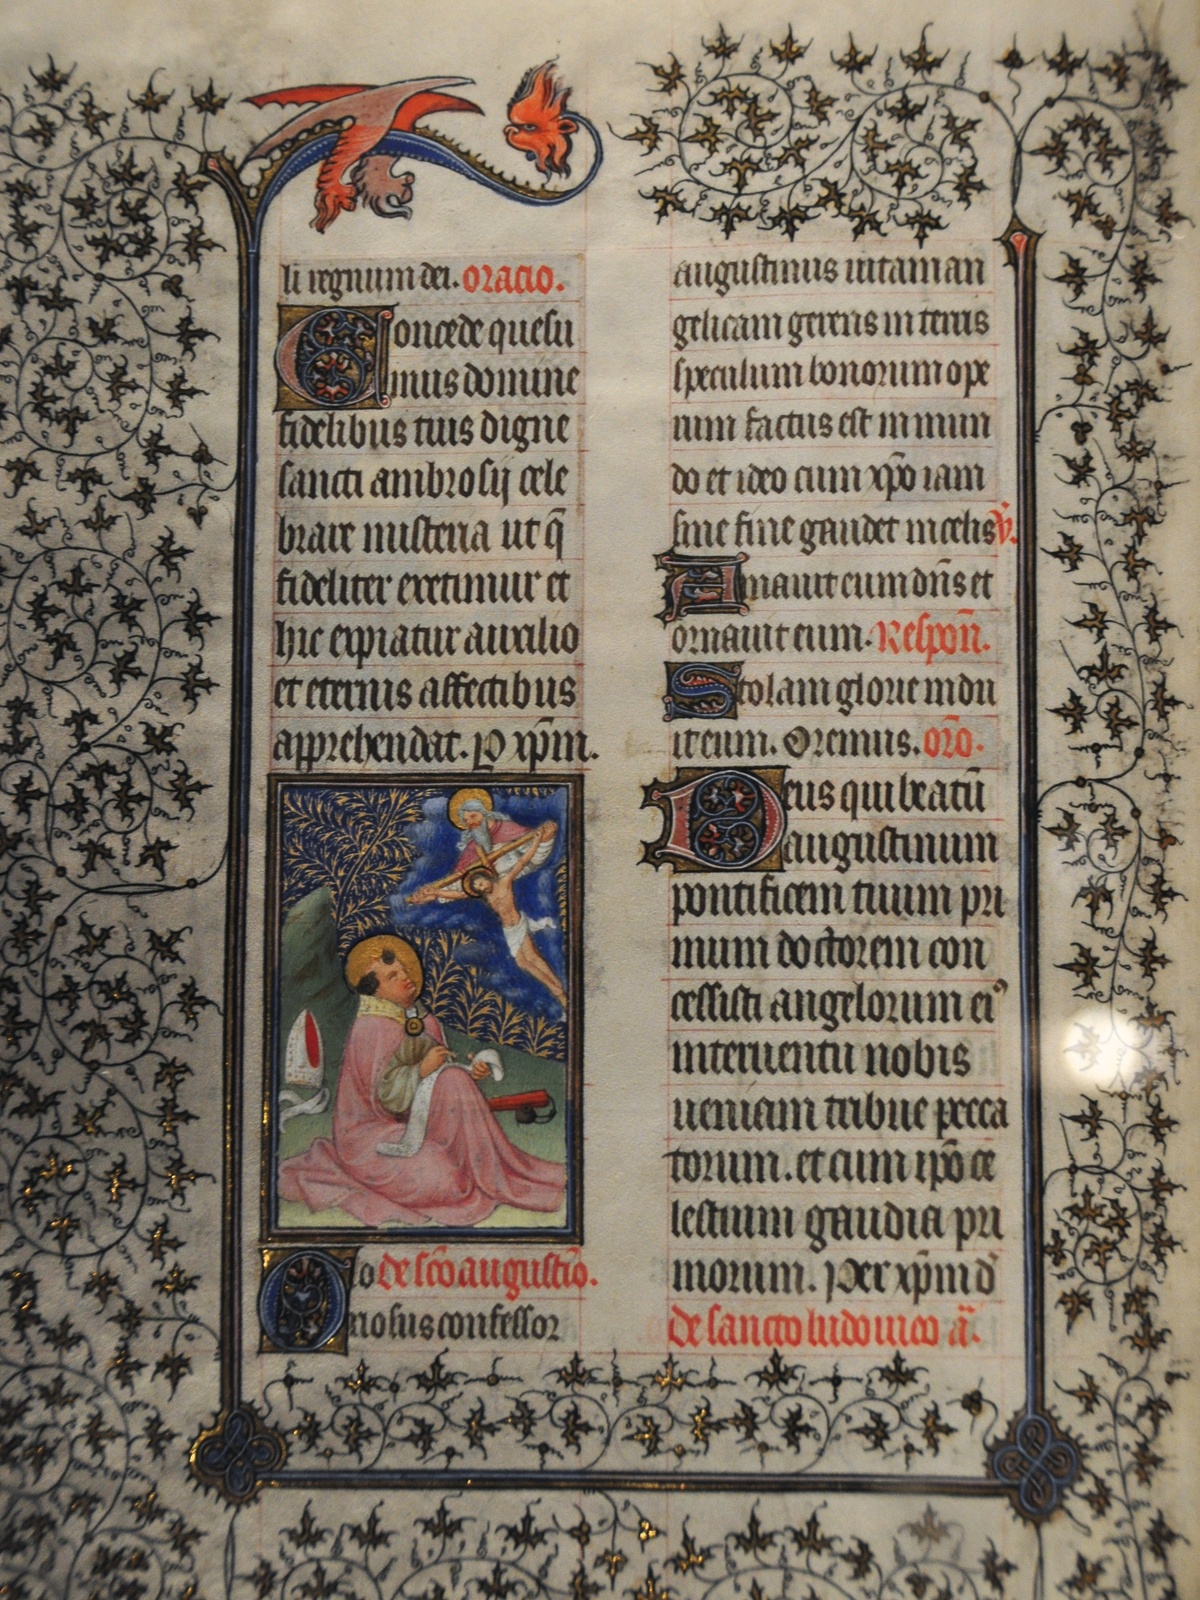 li regnum dei. oracio.
Concede quesu
mus domine
fidelibus tuis digne
sancti ambrosij cele
brare misteria ut q̄
fideliter exetimur et
hic expiatur auxilio
et eternis affectibus
apprehendat. P xp̄m.
O io de sc̄o augustīo.
nosus confessor
augustinus uitam an
gelicam gerens in terris
speculum bonorum ope
rum factus est in mun
do et ideo cum xp̄o iam
sine fine gaudet in celis v̄.
Amauit eum dn̄s et
ornauit eum. Respon̄.
Stolam glorie indu
it eum. Oremus. or̄o.
Deus qui beatū
augustinum
pontificem tuum pri
mum doctorem con
cessisti angelorum ei⁹
interuentu nobis
ueniam tribue pecca
torum. et cum ip̄o ce
lestium gaudia pri
morum. Per xp̄m d̄
de sancto ludouico a̅.